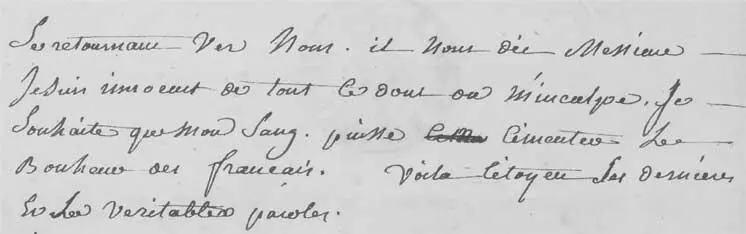 Se retournant Ver Nous. il Nous dit Messieur
Je suis innocent de tout Ce dont on M'inculpe. Je
Souhaite que Mon Sang. puisse Cimenter Le
Bonheur des francais. Voila Citoyen Ses dernieres
Et Les veritables paroles.